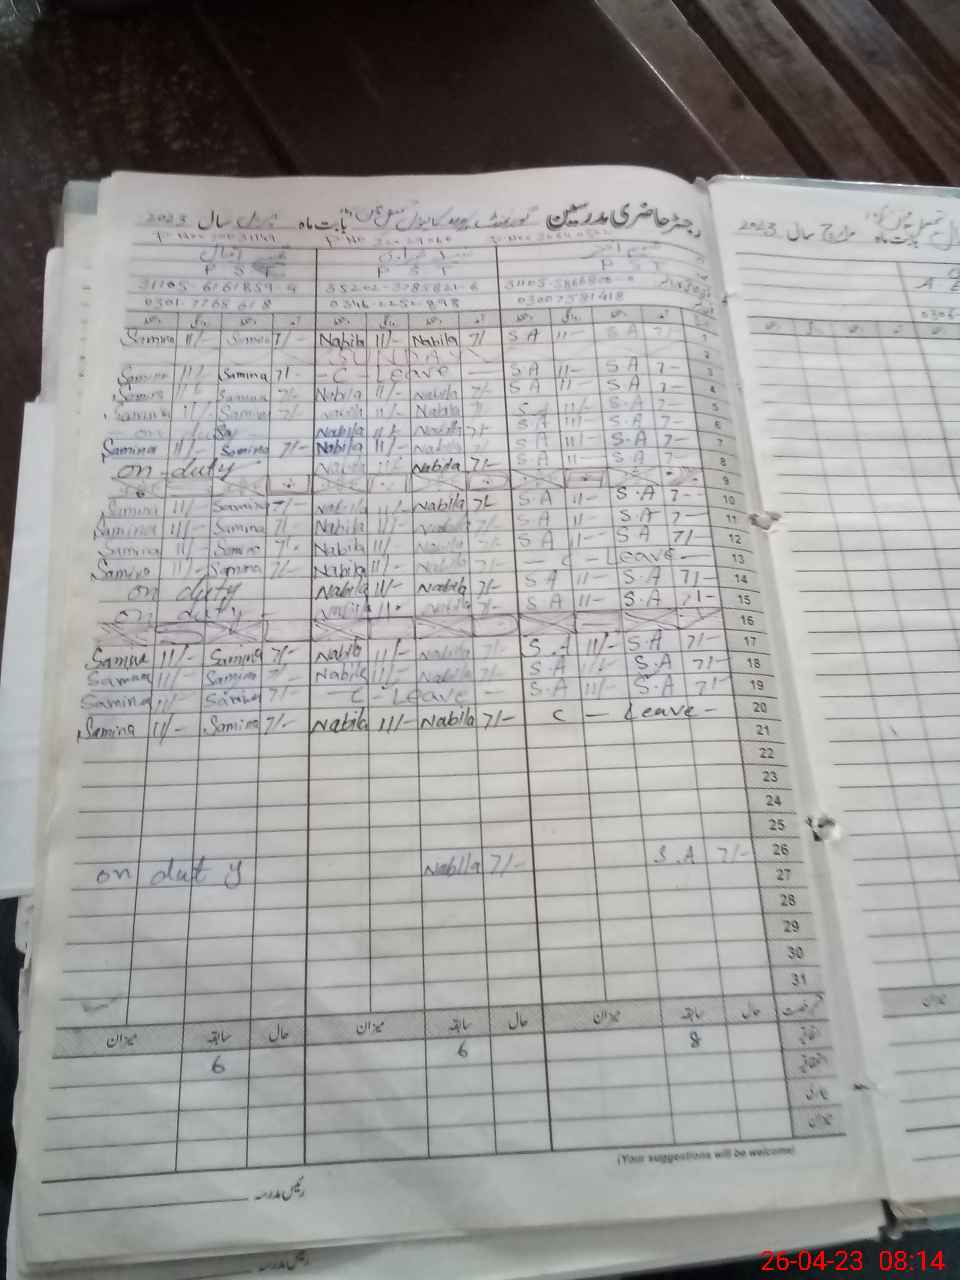 رجسٹر حاضری مدرسین گورنمنٹ بابت ماہ اپریل سال 2023
P S T P S T P S T
31105-6161859-9 35202-3785821-6
0301-7765618 0346-0252898 03007581418
Samina 11/- Samina 7/- Nabila 11/- Nabila 7/- S A 11- S A 7- 1
SUNDAY 2
Samina 11/- Samina 7/- - C - Leave - S A 11- S A 7- 3
Samina 11/- Samina 7/- Nabila 11/- Nabila 7/- S A 11- S A 7- 4
Samina 11/- Samina 7/- Nabila 11/- Nabila 7/- S A 11- S A 7- 5
on Nabila 11/- Nabila 7/- S A 11- S A 7- 6
Samina 11/- Samina 7/- Nabila 11/- Nabila 7/- S A 11- S.A 7- 7
on duty Nabila 11/- Nabila 7/- S A 11- S A 7- 8
9
Samina 11/- Samina 7/- Nabila 11/- Nabila 7/- S A 11- S.A 7- 10
Samina 11/- Samina 7/- Nabila 11/- Nabila 7/- S A 11- S.A 7- 11
Samina 11/- Samina 7/- Nabila 11/- Nabila 7/- S A 11- S A 7/- 12
Samina 11/- Samina 7/- Nabila 11/- Nabila 7/- - C - Leave - 13
on duty Nabila 11/- Nabila 7/- S A 11- S.A 7/- 14
on duty - Nabila 11/- Nabila 7/- S A 11- S.A 7/- 15
16
Samina 11/- Samina 7/- Nabila 11/- Nabila 7/- S.A 11/- S.A 7/- 17
Samina 11/- Samina 7/- Nabila 11/- Nabila 7/- S.A 11/- S.A 7/- 18
Samina 11/- Samina 7/- - C - Leave - S.A 11/- S.A 7/- 19
Samina 11/- Samina 7/- Nabila 11/- Nabila 7/- C - Leave - 20
21
22
23
24
25
on duty Nabila 7/- S.A 7/- 26
27
28
29
30
31
حال سابقہ میزان حال سابقہ میزان حال سابقہ میزان
6 6 8
اتفاقی
بیماری
میزان
(Your suggestions will be welcome)
رئیس مدرسہ
رئیس مدرسہ
بابت ماہ مارچ سال 2023
0306-
میزان
26-04-23 08:14